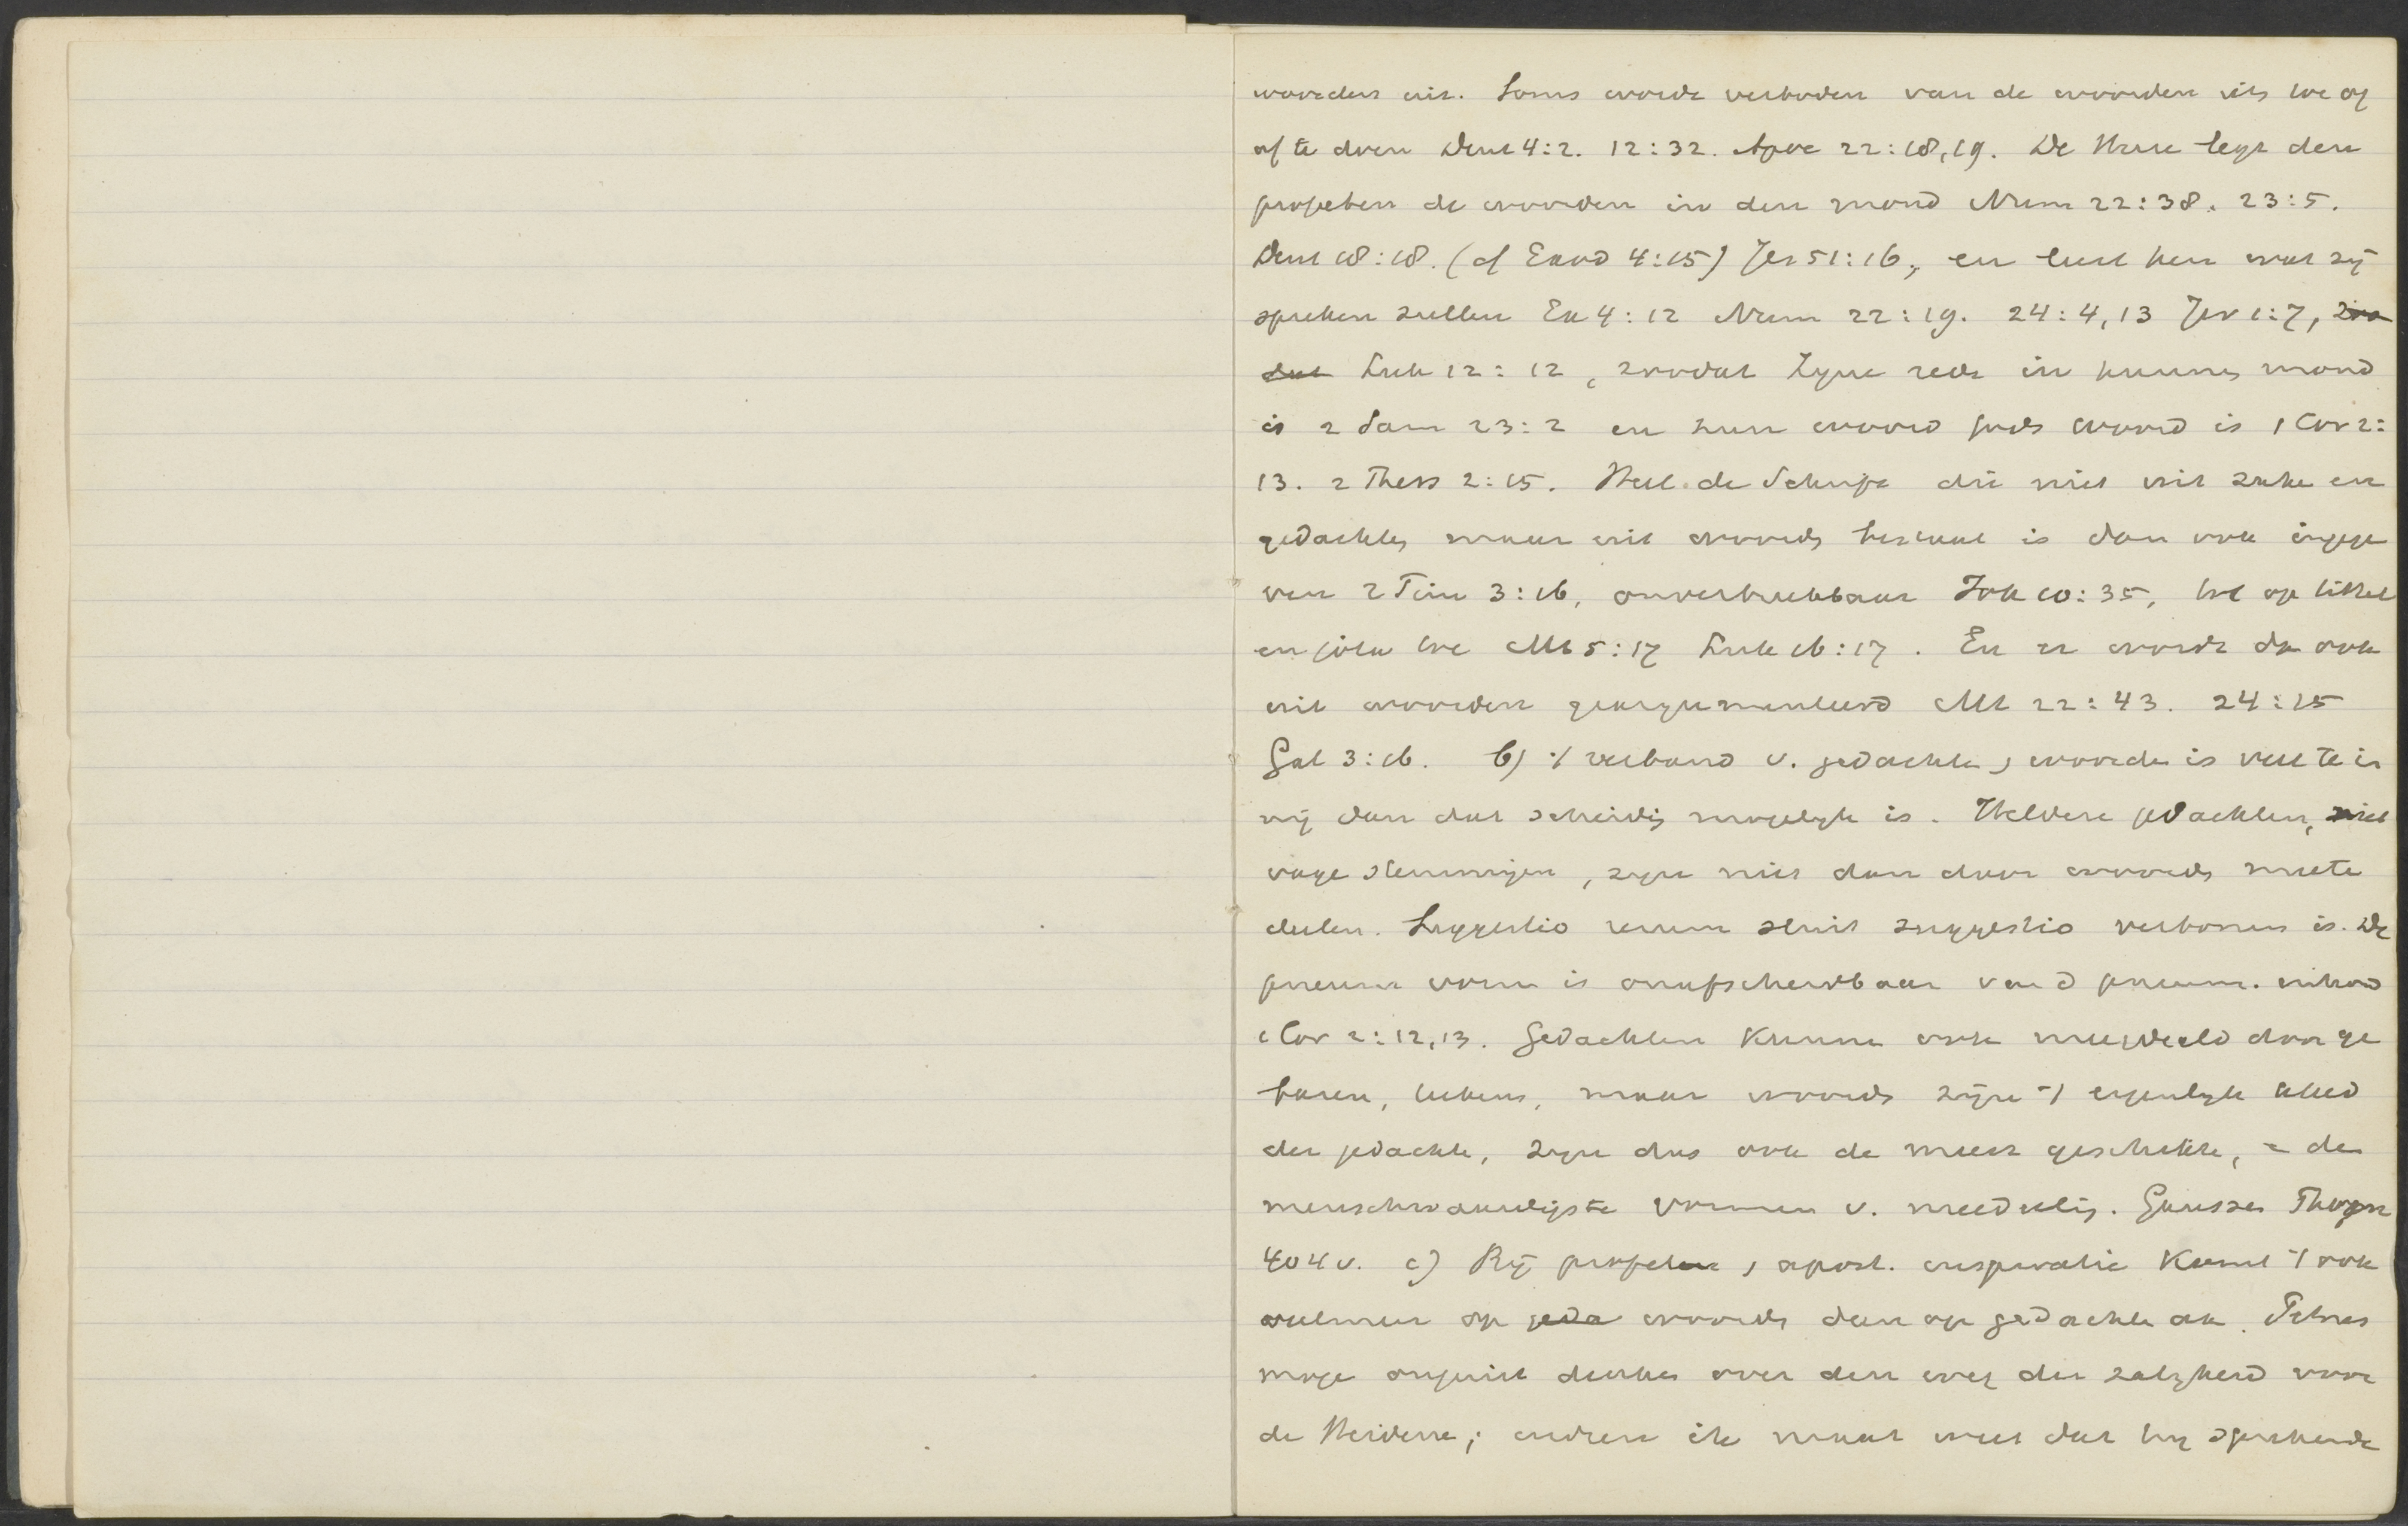 woorden uit. Soms wordt verboden van de woorden iets toe of
af te doen Deut 4:2. 12:32. Apoc 22:18,19. De Heere legt den
profeten de woorden in den mond Num 22:38. 23:5.
Deut 18:18. (cf Exod 4:15) Jes 51:16, en leert hen wat zij
spreken zullen Ex 4:12 Num 22:19. 24:4,13 Jer 1:7, zoo
dat Luk 12:12, zoodat Zijne rede in hunnen mond
is 2 Sam 23:2 en hun woord Gods woord is 1 Cor 2:
13. 2 Thess 2:15. Heel de Schrift die niet uit zake en
gedachten maar uit woorden bestaat is dan ook ingege
ven 2 Tim 3:16, onverbreekbaar Joh 10:35, tot op tittel
en jota toe Mt 5:17 Luk 16:17. En er wordt dr ook
uit woorden geargumenteerd Mt 22:43. 24:15
Gal 3:16. b) 't verband v. gedachte, woorden is veel te in
nig dan dat scheiding mogelijk is. Heldere gedachten, niet
vage stemmingen, zijn niet dan door woorden mee te
deelen. Suggestio rerum sluit suggestio verborum in. De
pneum vorm is onafscheidbaar van d pneum. inhoud
1 Cor 2:12,13. Gedachten kunnen ook meegedeeld door ge
baren, teekens, maar woorden zijn 't eigenlijk kleed
der gedachte, zijn dus ook de meest geschikte, = de
menschwaardigste vormen v. meedeeling. Girgensohn
404 v. c) Bij profetie, apost. inspiratie komt 't ook
veelmeer op geda woorden dan op gedachte aan. Petrus
moge onjuist denken over den weg der zaligheid voor
de Heidenen; indien ik maar weet dat hij sprekende